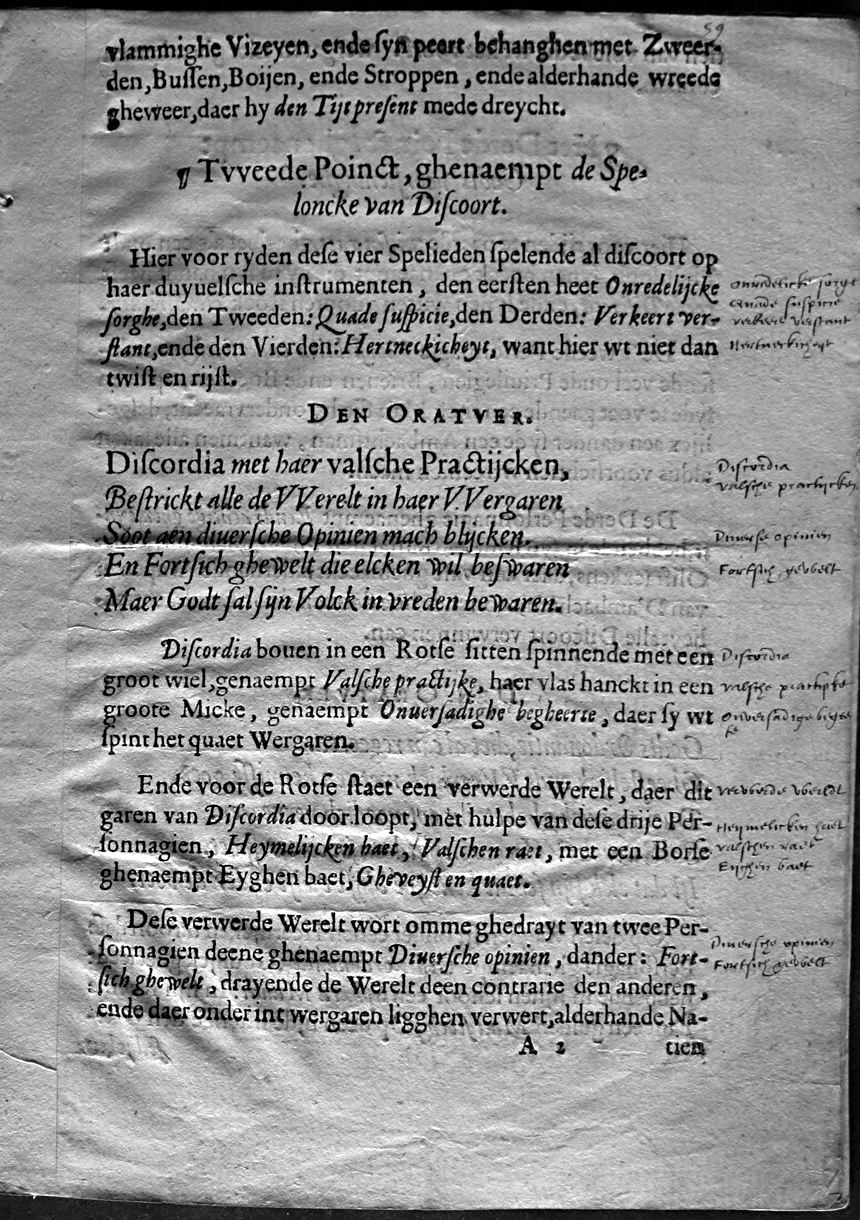 59
vlammighe Vizeyen, ende ſyn peert behanghen met Zweer-
den, Buſſen, Boijen, ende Stroppen, ende alderhande wreede
gheweer, daer hy den Tijt preſent mede dreycht.
¶ Tvveede Poinct, ghenaempt de Spe-
loncke van Diſcoort.
Hier voor ryden deſe vier Spelieden ſpelende al diſcoort op
haer duyuelſche inſtrumenten, den eerſten heet Onredelijcke
ſorghe, den Tweeden: Quade ſuſpicie, den Derden: Verkeert ver-
ſtant, ende den Vierden: Hertneckicheyt, want hier wt niet dan
twiſt en rijſt.
Onredelicke sorge
Quade suspicie
verkeert verstant
Hertneckicheyt
DEN ORATVER.
Diſcordia met haer valſche Practijcken,
Beſtrickt alle de VVerelt in haer VVergaren
Soot aen diuerſche Opinien mach blijcken.
En Fortſich ghewelt die elcken wil beſwaren
Maer Godt ſal ſijn Volck in vreden bewaren.
Discordia
valsche practijcken
Diuersche opinien
Fortsich gewelt
Diſcordia bouen in een Rotſe ſitten ſpinnende met een
groot wiel, genaempt Valſche practijke, haer vlas hanckt in een
groote Micke, genaempt Onuerſadighe begheerte, daer ſy wt
ſpint het quaet Wergaren.
Discordia
valsche practijke
onversadige begeerte
Ende voor de Rotſe ſtaet een verwerde Werelt, daer dit
garen van Diſcordia door loopt, met hulpe van deſe drije Per-
ſonnagien, Heymelijcken haet, Valſchen raet, met een Borſe
ghenaempt Eyghen baet, Gheveyſt en quaet.
verwerde werelt
Heymelicken haet
valschen raet
Eyghen baet
Deſe verwerde Werelt wort omme ghedrayt van twee Per-
ſonnagien deene ghenaempt Diuerſche opinien, dander: Fort-
ſich ghewelt, drayende de Werelt deen contrarie den anderen,
ende daer onder int wergaren ligghen verwert, alderhande Na-
Diuersche opinien
Fortsich gewelt
A 2 tien